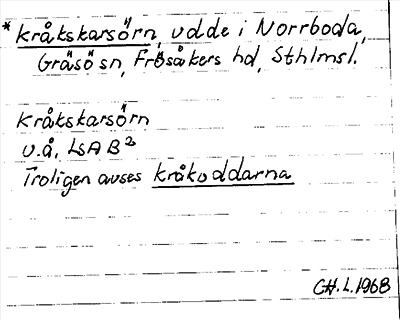 * Kråkskarsörn, udde i Norrboda,
Gräsö sn, Frösåkers hd, Sthlmsl.
Kråkskarsörn
u.å, LSA B²
Troligen avses Kråkuddarna
CH.L.1968